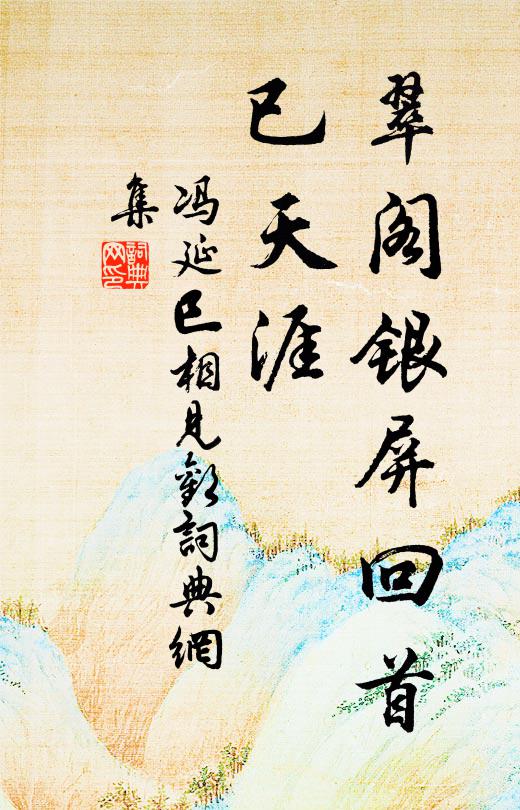 翠阁银屏回首
已天涯
冯延巳相见歡詞典網
集
詞典
网印